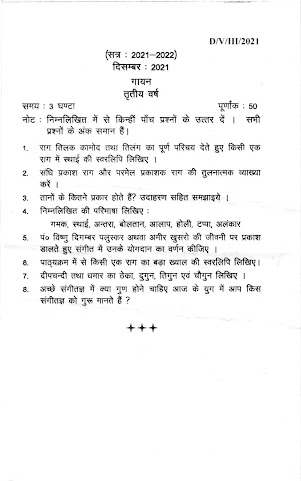 D/V/III/2021
(सत्र : 2021–2022)
दिसम्बर : 2021
गायन
तृतीय वर्ष
समय : 3 घण्टा पूर्णांक : 50
नोट : निम्नलिखित में से किन्हीं पाँच प्रश्नों के उत्तर दें । सभी
प्रश्नों के अंक समान हैं।
1. राग तिलक कामोद तथा तिलंग का पूर्ण परिचय देते हुए किसी एक
राग में स्थाई की स्वरलिपि लिखिए ।
2. संधि प्रकाश राग और परमेल प्रकाशक राग की तुलनात्मक व्याख्या
करें ।
3. तानों के कितने प्रकार होते हैं? उदाहरण सहित समझाइये ।
4. निम्नलिखित की परिभाषा लिखिए :
गमक, स्थाई, अन्तरा, बोलतान, आलाप, होली, टप्पा, अलंकार
5. पं० विष्णु दिगम्बर पलुस्कर अथवा अमीर खुसरो की जीवनी पर प्रकाश
डालते हुए संगीत में उनके योगदान का वर्णन कीजिए ।
6. पाठ्यक्रम में से किसी एक राग का बड़ा ख्याल की स्वरलिपि लिखिए।
7. दीपचन्दी तथा धमार का ठेका, दुगुन, तिगुन एवं चौगुन लिखिए ।
8. अच्छे संगीतज्ञ में क्या गुण होने चाहिए आज के युग में आप किस
संगीतज्ञ को गुरू मानते हैं ?